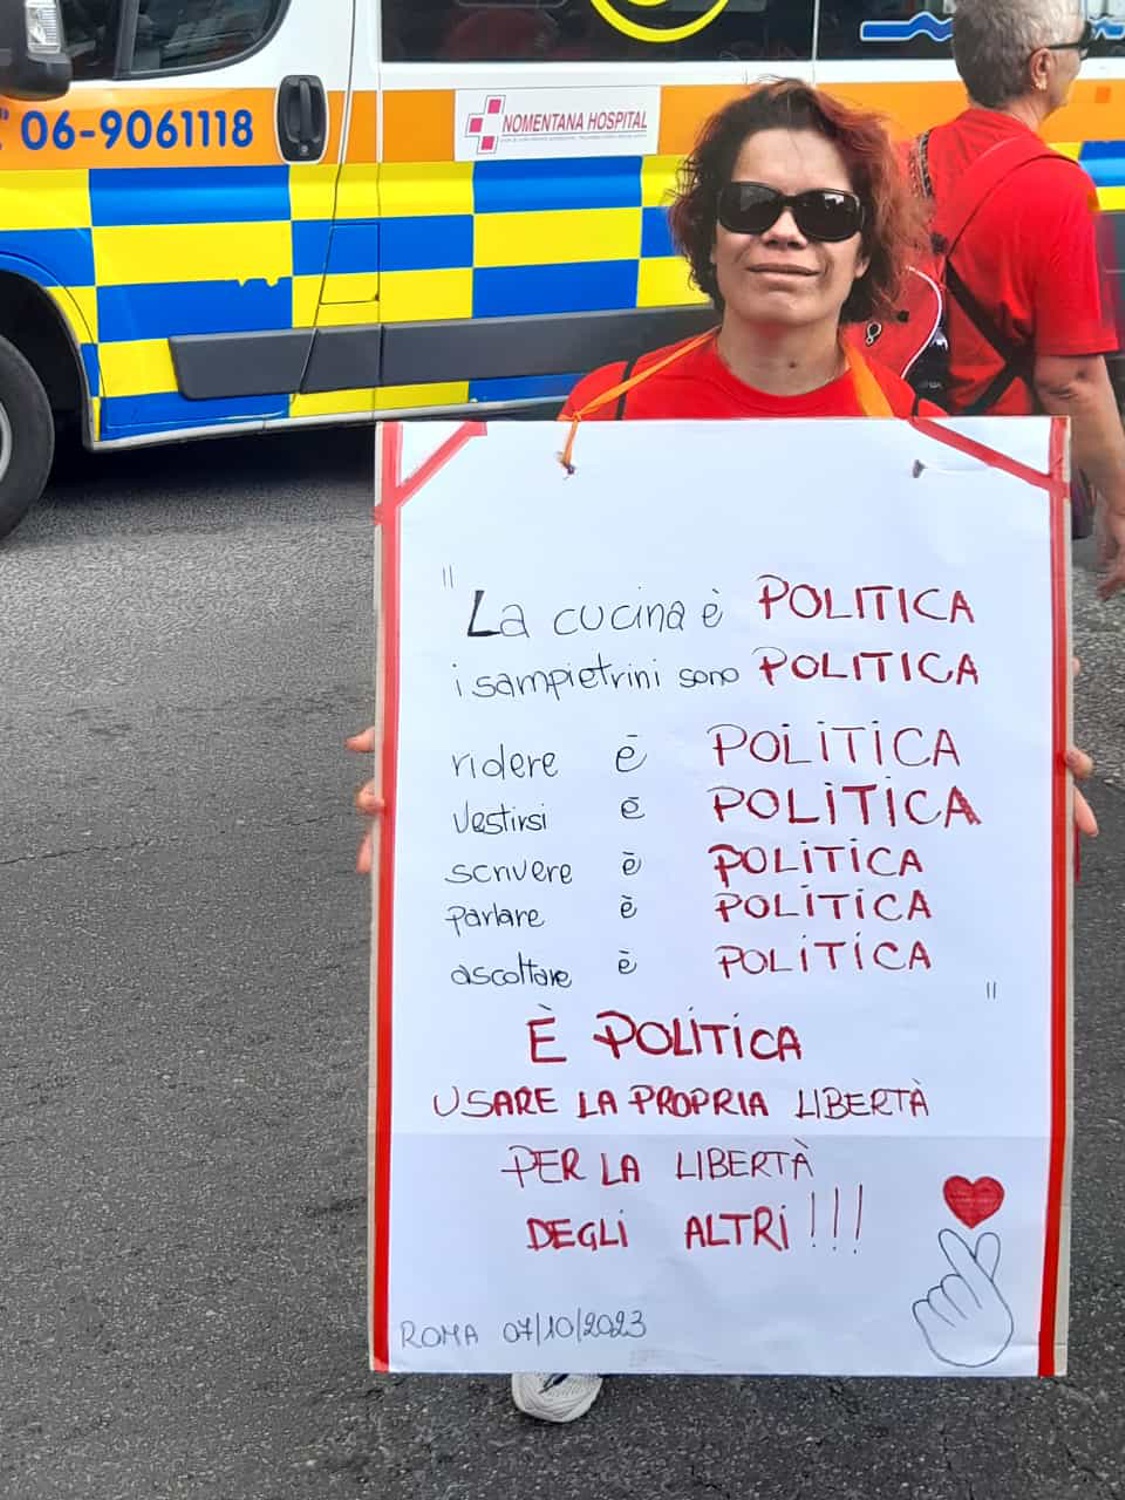 06-9061118
NOMENTANA HOSPITAL
"La cucina è POLITICA
i sampietrini sono POLITICA
ridere è POLiTiCA
vestirsi è POLiTiCA
scrivere è POLiTiCA
parlare è POLiTiCA
ascoltare è POLiTiCA"
È POLiTiCA
USARE LA PROPRIA LIBERTÀ
PER LA LIBERTÀ
DEGLi ALTRi!!!
ROMA 07/10/2023